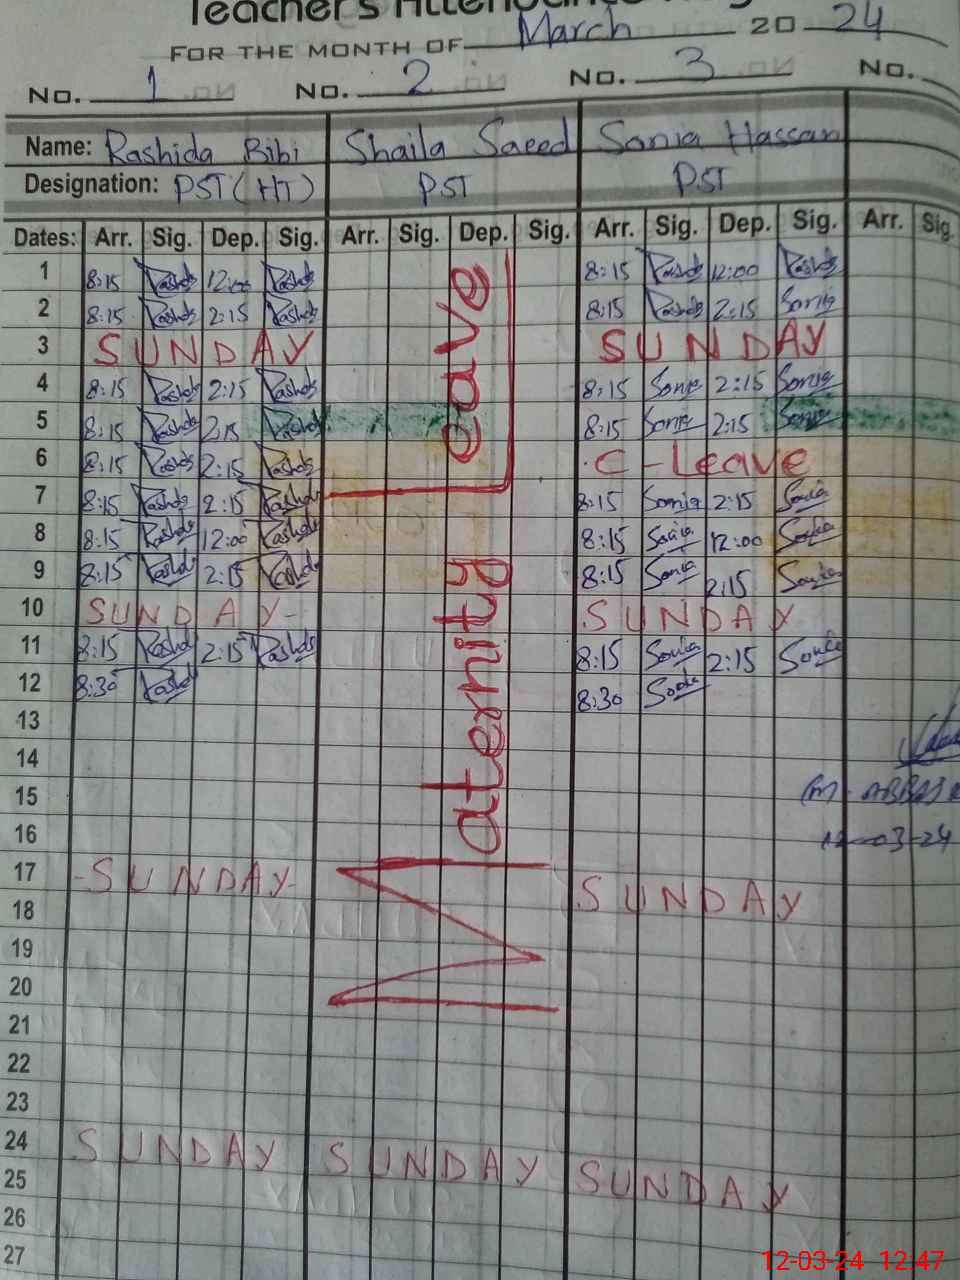 Teacher's Attendance
FOR THE MONTH OF March 20 24
No. 1 No. 2 No. 3 No.
Name: Rashida Bibi Shaila Saeed Sania Hassan
Designation: PST (HT) PST PST
Dates: Arr. Sig. Dep. Sig. Arr. Sig. Dep. Sig. Arr. Sig. Dep. Sig. Arr. Sig.
Maternity Leave
1 8:15 Rashda 12:00 Rashda 8:15 Rashda 12:00 Rashda
2 8:15 Rashda 2:15 Rashda 8:15 Rashda 2:15 Sonia
3 SUNDAY SUNDAY
4 8:15 Rashda 2:15 Rashda 8:15 Sonia 2:15 Sonia
5 8:15 Rashda 2:15 Rashda 8:15 Sonia 2:15 Sonia
6 8:15 Rashda 2:15 Rashda C-Leave
7 8:15 Rashda 2:15 Rashda 8:15 Sonia 2:15 Sonia
8 8:15 Rashda 12:00 Rashda 8:15 Sonia 12:00 Sonia
9 8:15 Rashda 2:15 Rashda 8:15 Sonia 2:15 Sonia
10 SUNDAY SUNDAY
11 8:15 Rashda 2:15 Rashda 8:15 Sonia 2:15 Sonia
12 8:30 Rashda 8:30 Sonia
13
14
15 M. ABBAS
16 12-03-24
17 SUNDAY SUNDAY
18
19
20
21
22
23
24 SUNDAY SUNDAY SUNDAY
25
26
27
12-03-24 12:47